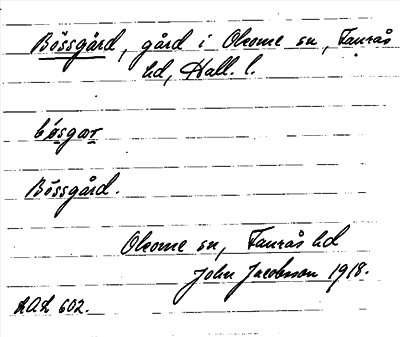 Bössgård, gård i Okome sn, Faurås
hd, Hall. l.
bø̀sgɑr
Bössgård.
Okome sn, Faurås hd
John Jacobsson 1918.
LAL 602.